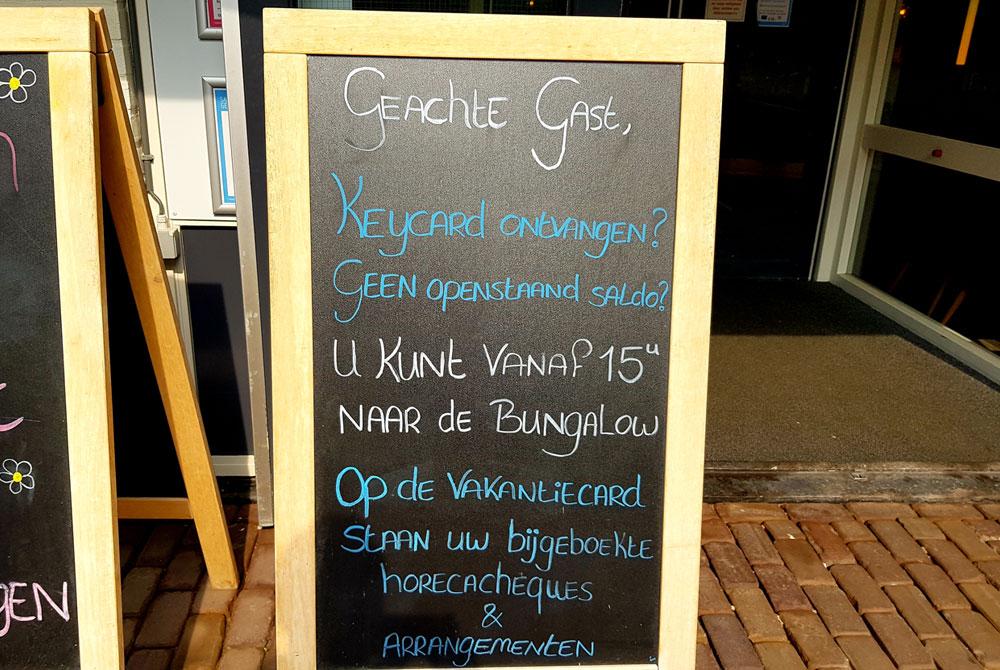 Geachte Gast,
Keycard ontvangen?
Geen openstaand saldo?
U kunt vanaf 15u
naar de Bungalow
Op de vakantiecard
staan uw bijgeboekte
horecachèques
&
arrangementen